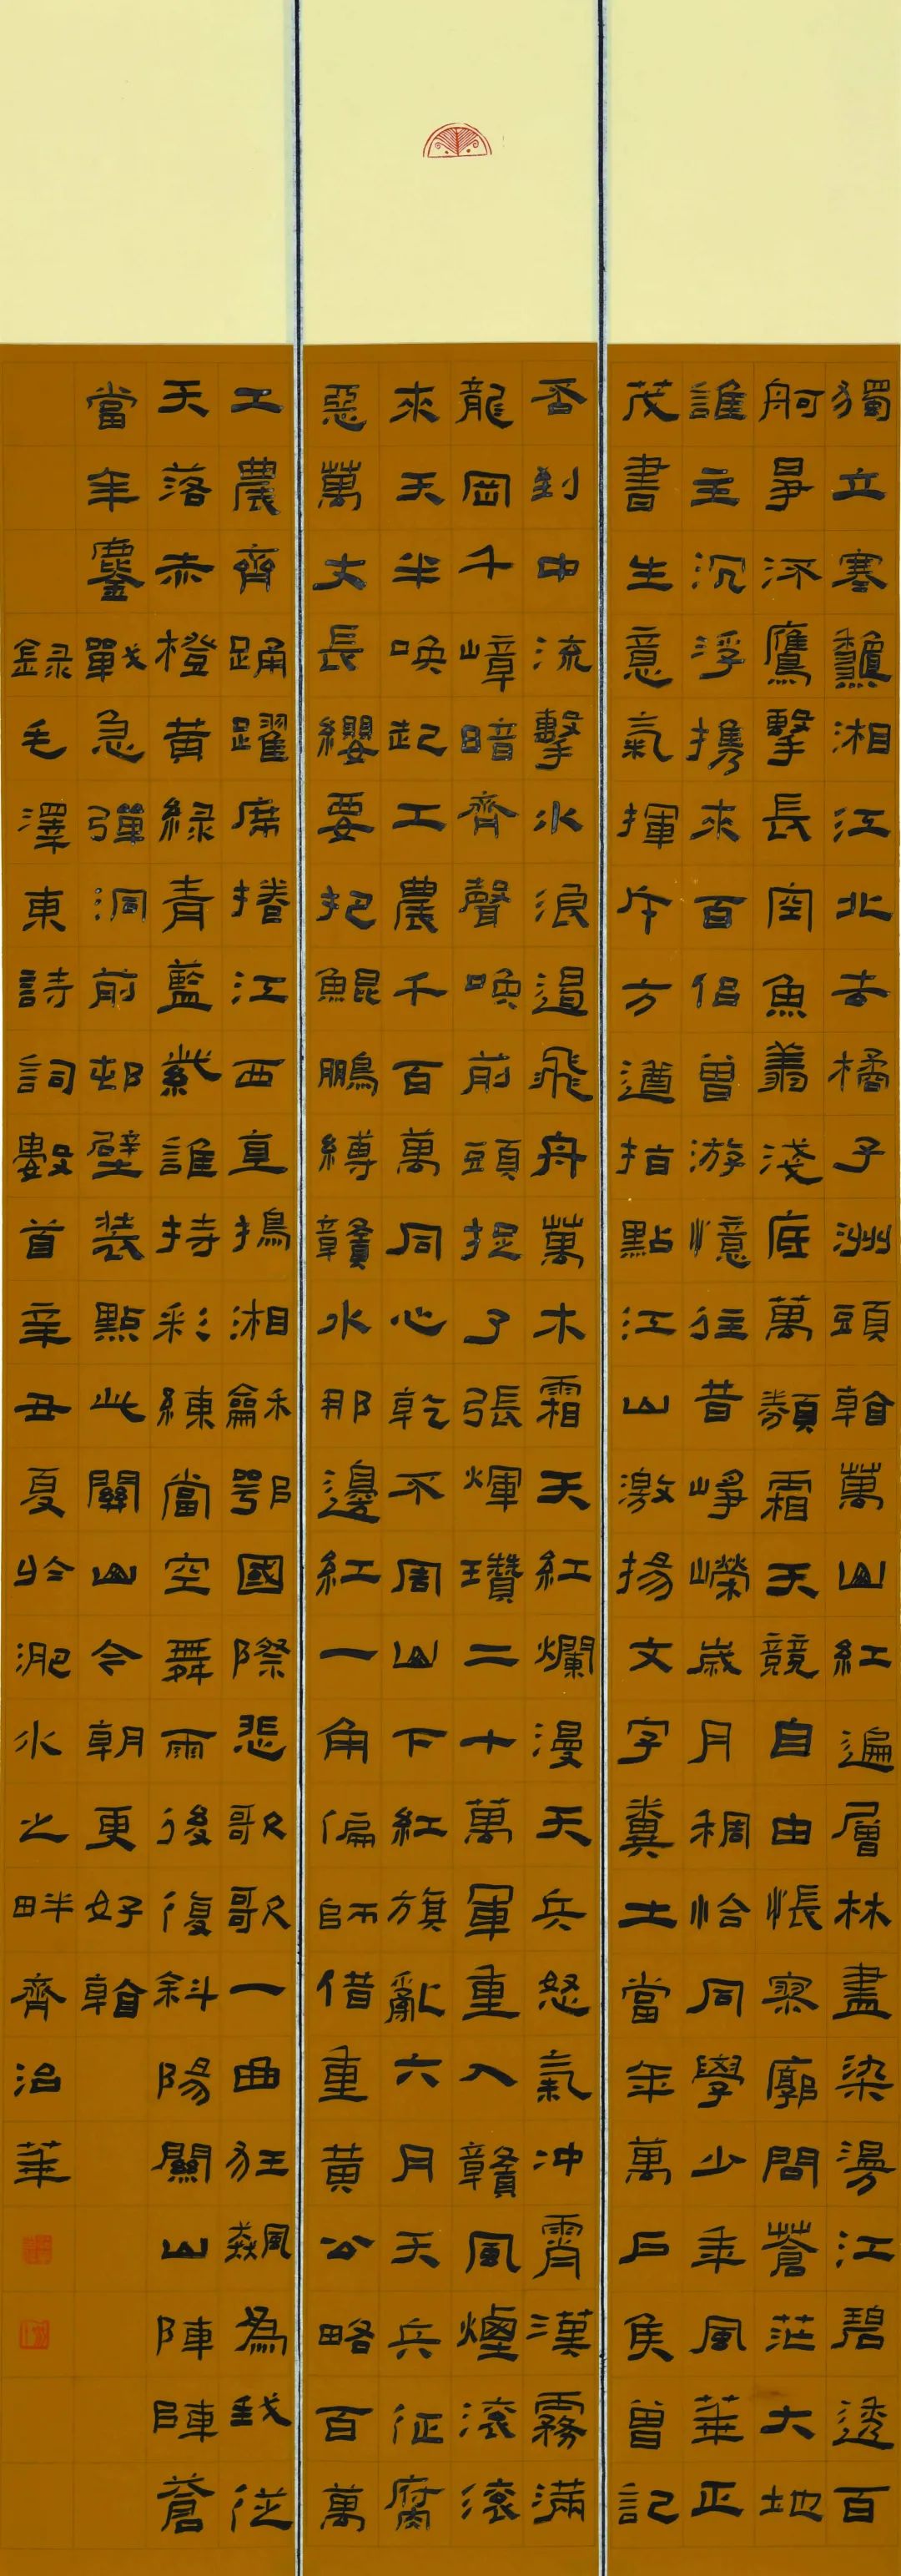 獨立寒龝湘江北去橘子洲頭看萬山紅遍層林盡染漫江碧透百
舸爭流鷹擊長空魚翔淺底萬類霜天競自由悵寥廓問蒼茫大地
誰主沉浮攜來百侶曾游憶往昔崢嶸歲月稠恰同學少年風華正
茂書生意氣揮斥方遒指點江山激揚文字糞土當年萬戶侯曾記
否到中流擊水浪遏飛舟萬木霜天紅爛漫天兵怒氣沖霄漢霧滿
龍岡千嶂暗齊聲喚前頭捉了張輝瓚二十萬軍重入贛風煙滾滾
來天半喚起工農千百萬同心乾不周山下紅旗亂六月天兵征腐
惡萬丈長纓要把鯤鵬縛贛水那邊紅一角偏師借重黃公略百萬
工農齊踴躍席捲江西直搗湘龢鄂國際悲歌歌一曲狂飆為我從
天落赤橙黃綠青藍紫誰持彩練當空舞雨後復斜陽關山陣陣蒼
當年鏖戰急彈洞前邨壁裝點此關山今朝更好看
錄毛澤東詩詞數首辛丑夏於淝水之畔齊治華